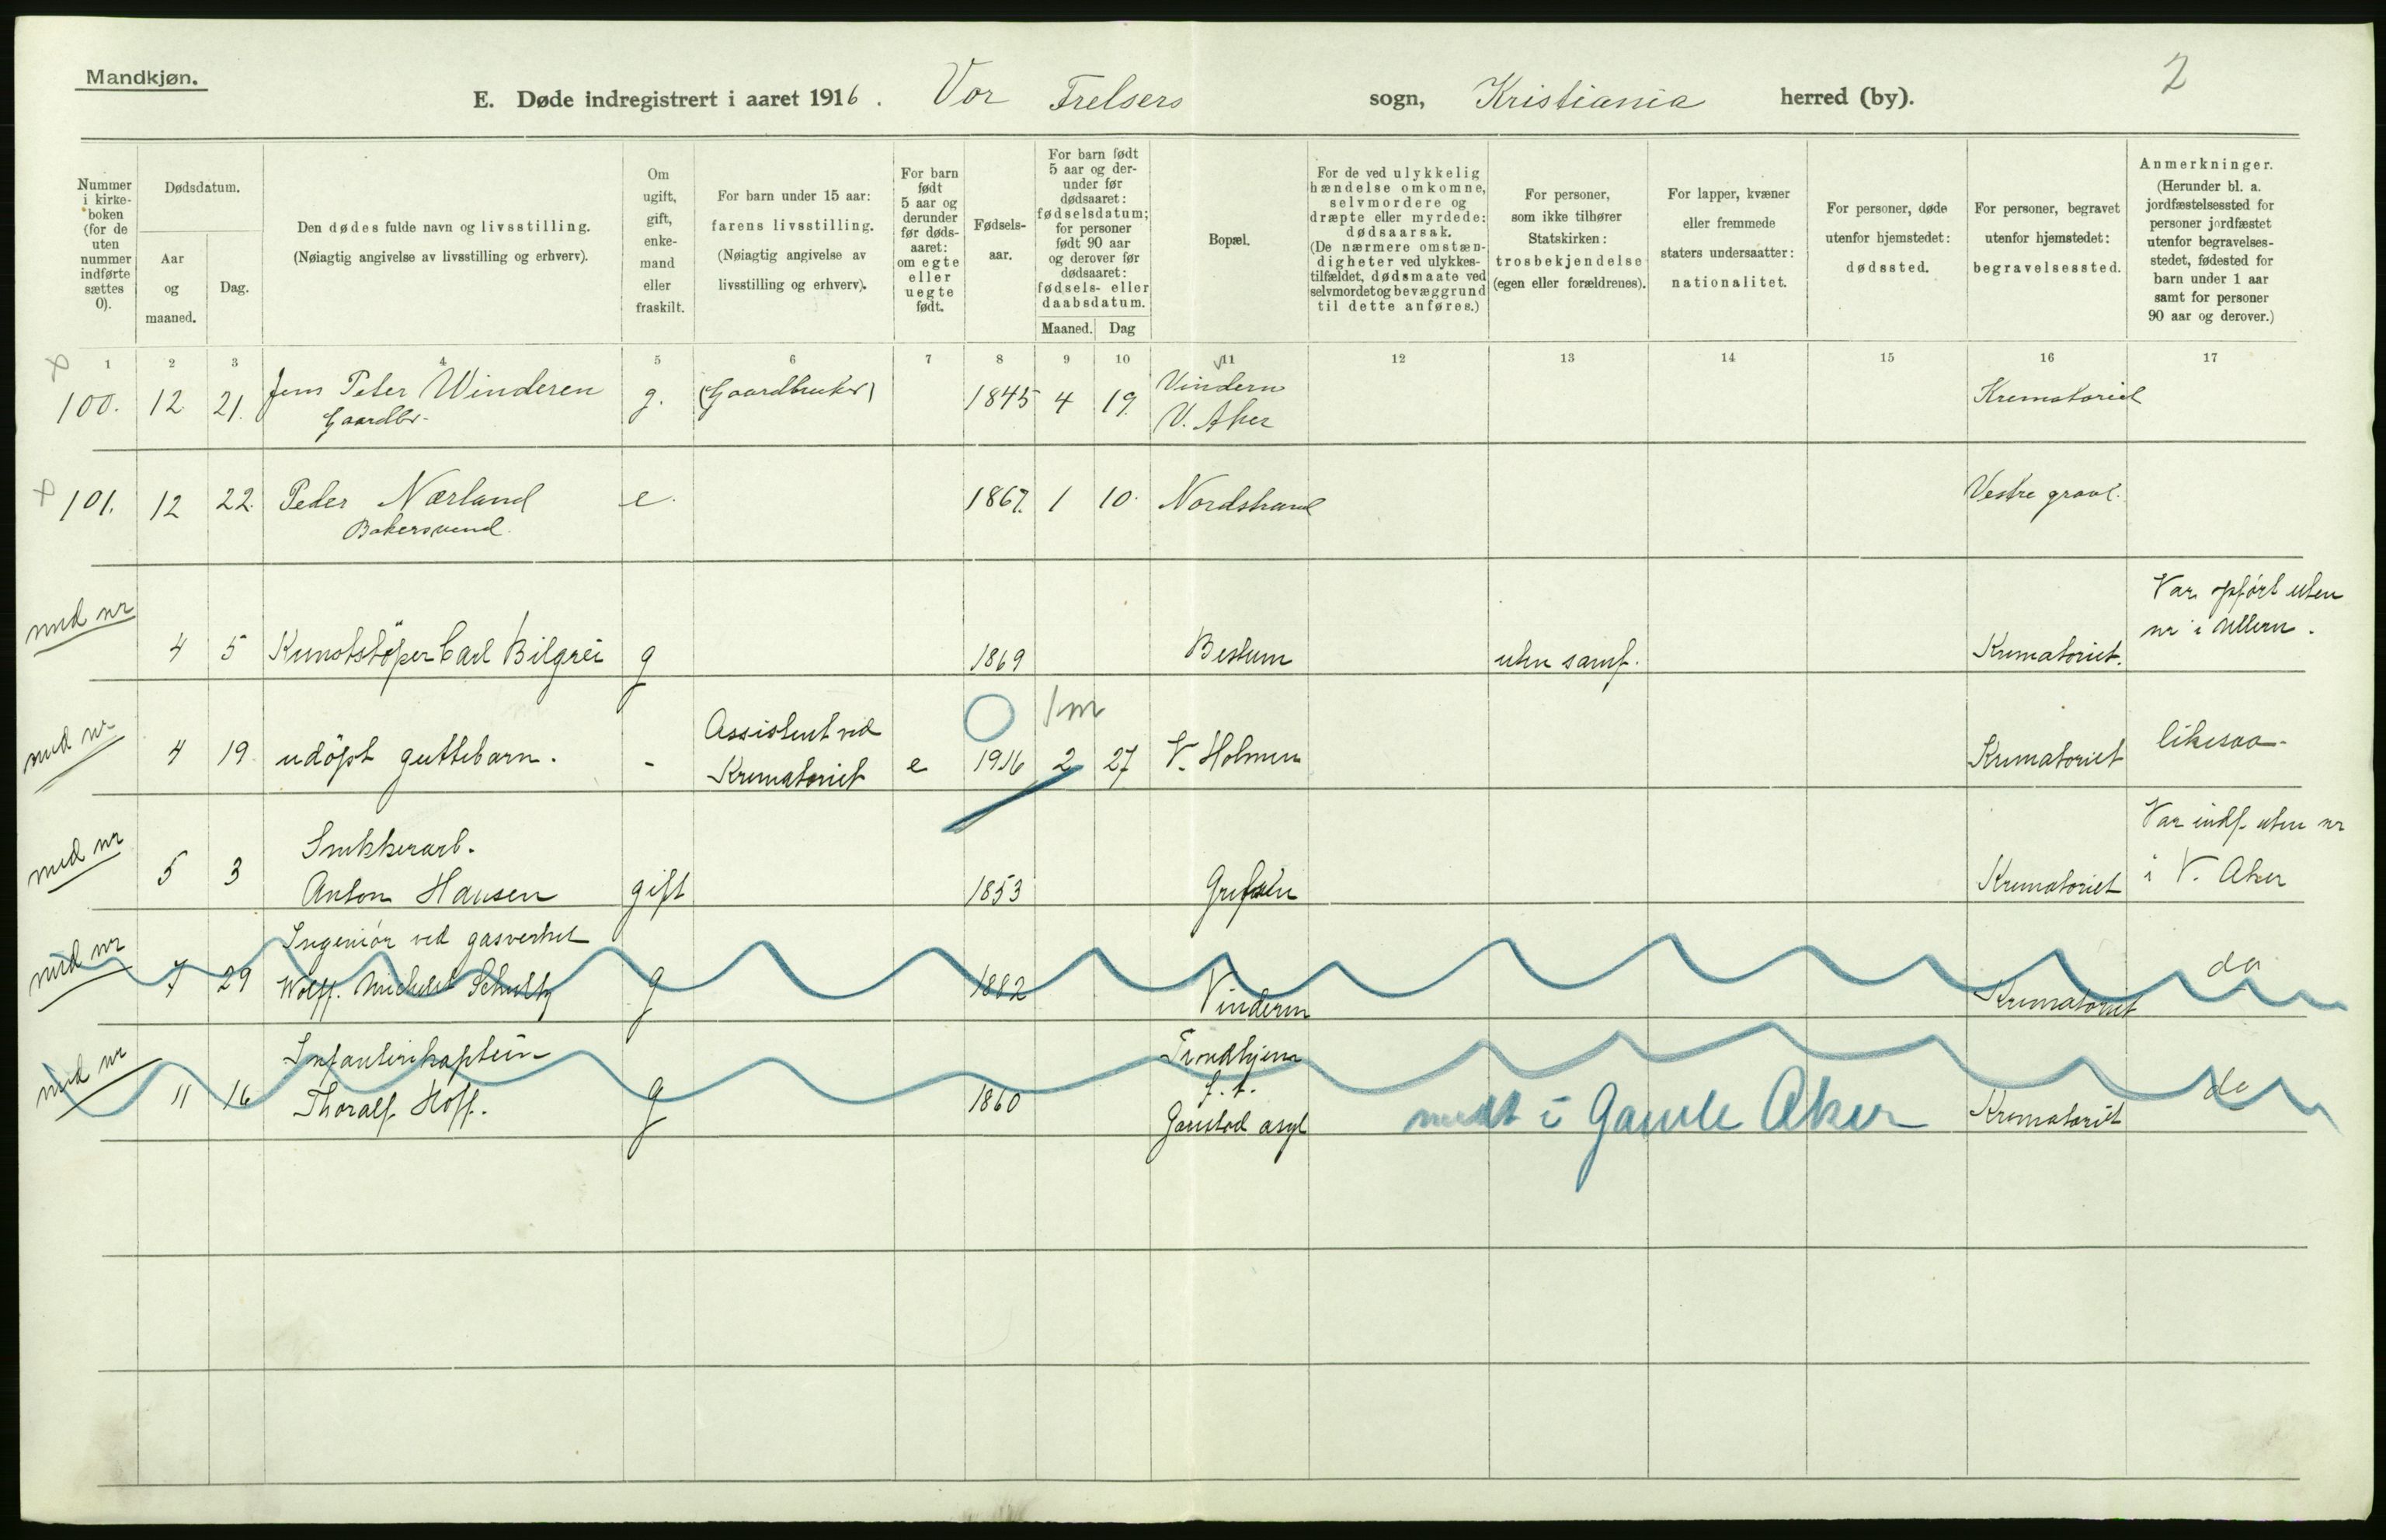 Mandkjøn.
2
E. Døde indregistrert i aaret 1916. Vor Frelsers sogn, Kristiania herred (by).
Nummer i kirke- boken (for de uten nummer indførte sættes 0).
Dødsdatum.
Aar og maaned.
Dag.
Den dødes fulde navn og livsstilling. (Nøiagtig angivelse av livsstilling og erhverv).
Om ugift, gift, enke- mand eller fraskilt.
For barn under 15 aar: farens livsstilling. (Nøiagtig angivelse av livsstilling og erhverv).
For barn født 5 aar og derunder før døds- aaret: om egte eller uegte født.
Fødsels- aar.
For barn født 5 aar og der- under før dødsaaret: fødselsdatum; for personer født 90 aar og derover før dødsaaret: fødsels- eller daabsdatum.
Maaned. Dag
Bopæl.
For de ved ulykkelig hændelse omkomne, selvmordere og dræpte eller myrdede: dødsaarsak. (De nærmere omstæn- digheter ved ulykkes- tilfældet, dødsmaate ved selvmordet og bevæggrund til dette anføres.)
For personer, som ikke tilhører Statskirken: trosbekjendelse (egen eller forældrenes).
For lapper, kvæner eller fremmede staters undersaatter: nationalitet.
For personer, døde utenfor hjemstedet: dødssted.
For personer, begravet utenfor hjemstedet: begravelsessted.
Anmerkninger. (Herunder bl. a. jordfæstelsessted for personer jordfæstet utenfor begravelses- stedet, fødested for barn under 1 aar samt for personer 90 aar og derover.)
1 2 3 4 5 6 7 8 9 10 11 12 13 14 15 16 17
100. 12 21. Jens Peter Winderen g. (Gaardbruker) 1845 4 19. Vindern Krematoriet
Gaardbr. V. Aker
101. 12 22. Peder Nærland e. 1867. 1 10. Nordstrand Vestre gravl.
Bakersvend.
med nr Var opført uten
nr i Ullern.
4 5 Kunststøper Carl Bilgrei g 1869 Bestum uten samf. Krematoriet.
med nr Assistent ved 1 m
4 19 udöpt guttebarn. - Krematoriet e 1916 2 27 V. Holmen Krematoriet likesaa
med nr Snekkerarb. Var indf. uten nr
5 3 Anton Hansen gift 1853 Grefsen Krematoriet i V. Aker
med nr Ingeniør ved gasverket
7 29 Wolff. Michelet Schultz g 1882 Vinderen Krematoriet do
med nr Infanterikaptein Trondhjem
f. t.
11 16 Thoralf Hoff. g 1860 Gaustad asyl Krematoriet do
medt i Gamle Aker